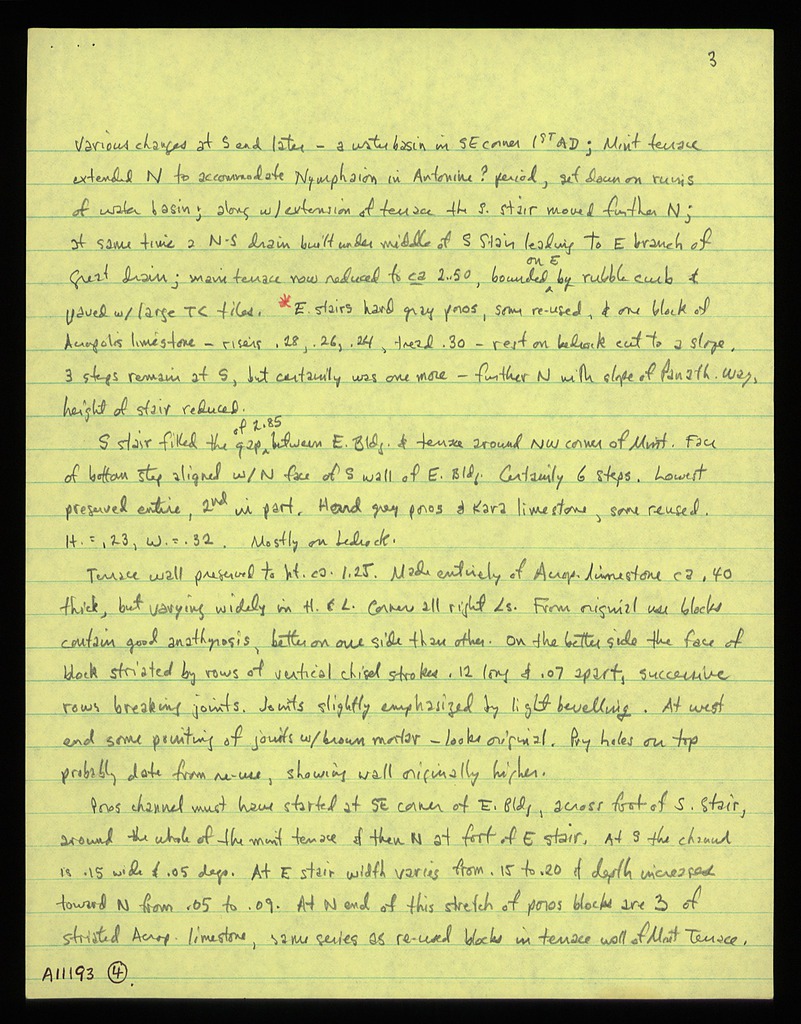 3
Various changes at S end later – a water basin in SE corner 1ST AD ; Mint terrace
extended N to accommodate Nymphaion in Antonine ? period, set down on ruins
of water basin ; along w/ extension of terrace the S. stair moved further N ;
at same time a N-S drain built under middle of S Stair leading to E branch of
Great drain ; main terrace now reduced to ca 2.50, bounded on E by rubble curb &
paved w/ large TC tiles. * E. stairs hard gray poros, some re-used, & one block of
Acropolis limestone – risers .28, .26, .24, tread .30 – rest on bedrock cut to a slope.
3 steps remain at S, but certainly was one more – further N with slope of Panath. Way,
height of stair reduced.
S stair filled the gap of 2.85 between E. Bldg. & terrace around NW corner of Mint. Face
of bottom step aligned w/ N face of S wall of E. Bldg. Certainly 6 steps. Lowest
preserved entire, 2nd in part. Hard gray poros & Kara limestone, some reused.
H. = .23, W. = .32. Mostly on bedrock.
Terrace wall preserved to ht. ca. 1.25. Made entirely of Acrop. limestone ca .40
thick, but varying widely in H. & L. Corners all right Ls. From original use blocks
contain good anathyrosis, better on one side than other. On the better side the face of
block striated by rows of vertical chisel strokes .12 long & .07 apart, successive
rows breaking joints. Joints slightly emphasized by light bevelling. At west
end some pointing of joints w/ brown mortar – looks original. Pry holes on top
probably date from re-use, showing wall originally higher.
Poros channel must have started at SE corner of E. Bldg, across foot of S. Stair,
around the whole of the mint terrace & then N at foot of E stair. At S the channel
is .15 wide & .05 deep. At E stair width varies from .15 to .20 & depth increases
toward N from .05 to .09. At N end of this stretch of poros blocks are 3 of
striated Acrop. limestone, same series as re-used blocks in terrace wall of Mint Terrace.
A11193 4